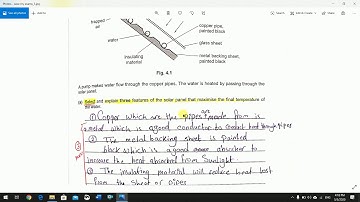 trapped
air
water
insulating
material
copper pipe,
painted black
glass sheet
metal backing sheet,
painted black
Fig. 4.1
A pump makes water flow through the copper pipes. The water is heated by passing through the
solar panel.
(a) Select and explain three features of the solar panel that maximise the final temperature of
the water.
① Copper which are the pipes are made from is
a metal which is a good conductor to conduct heat through pipes
② The metal backing sheet is painted
black which is a good absorber to
increase the heat absorbed from Sunlight.
③ The insulating material will reduce heat lost
from the sheet or pipes